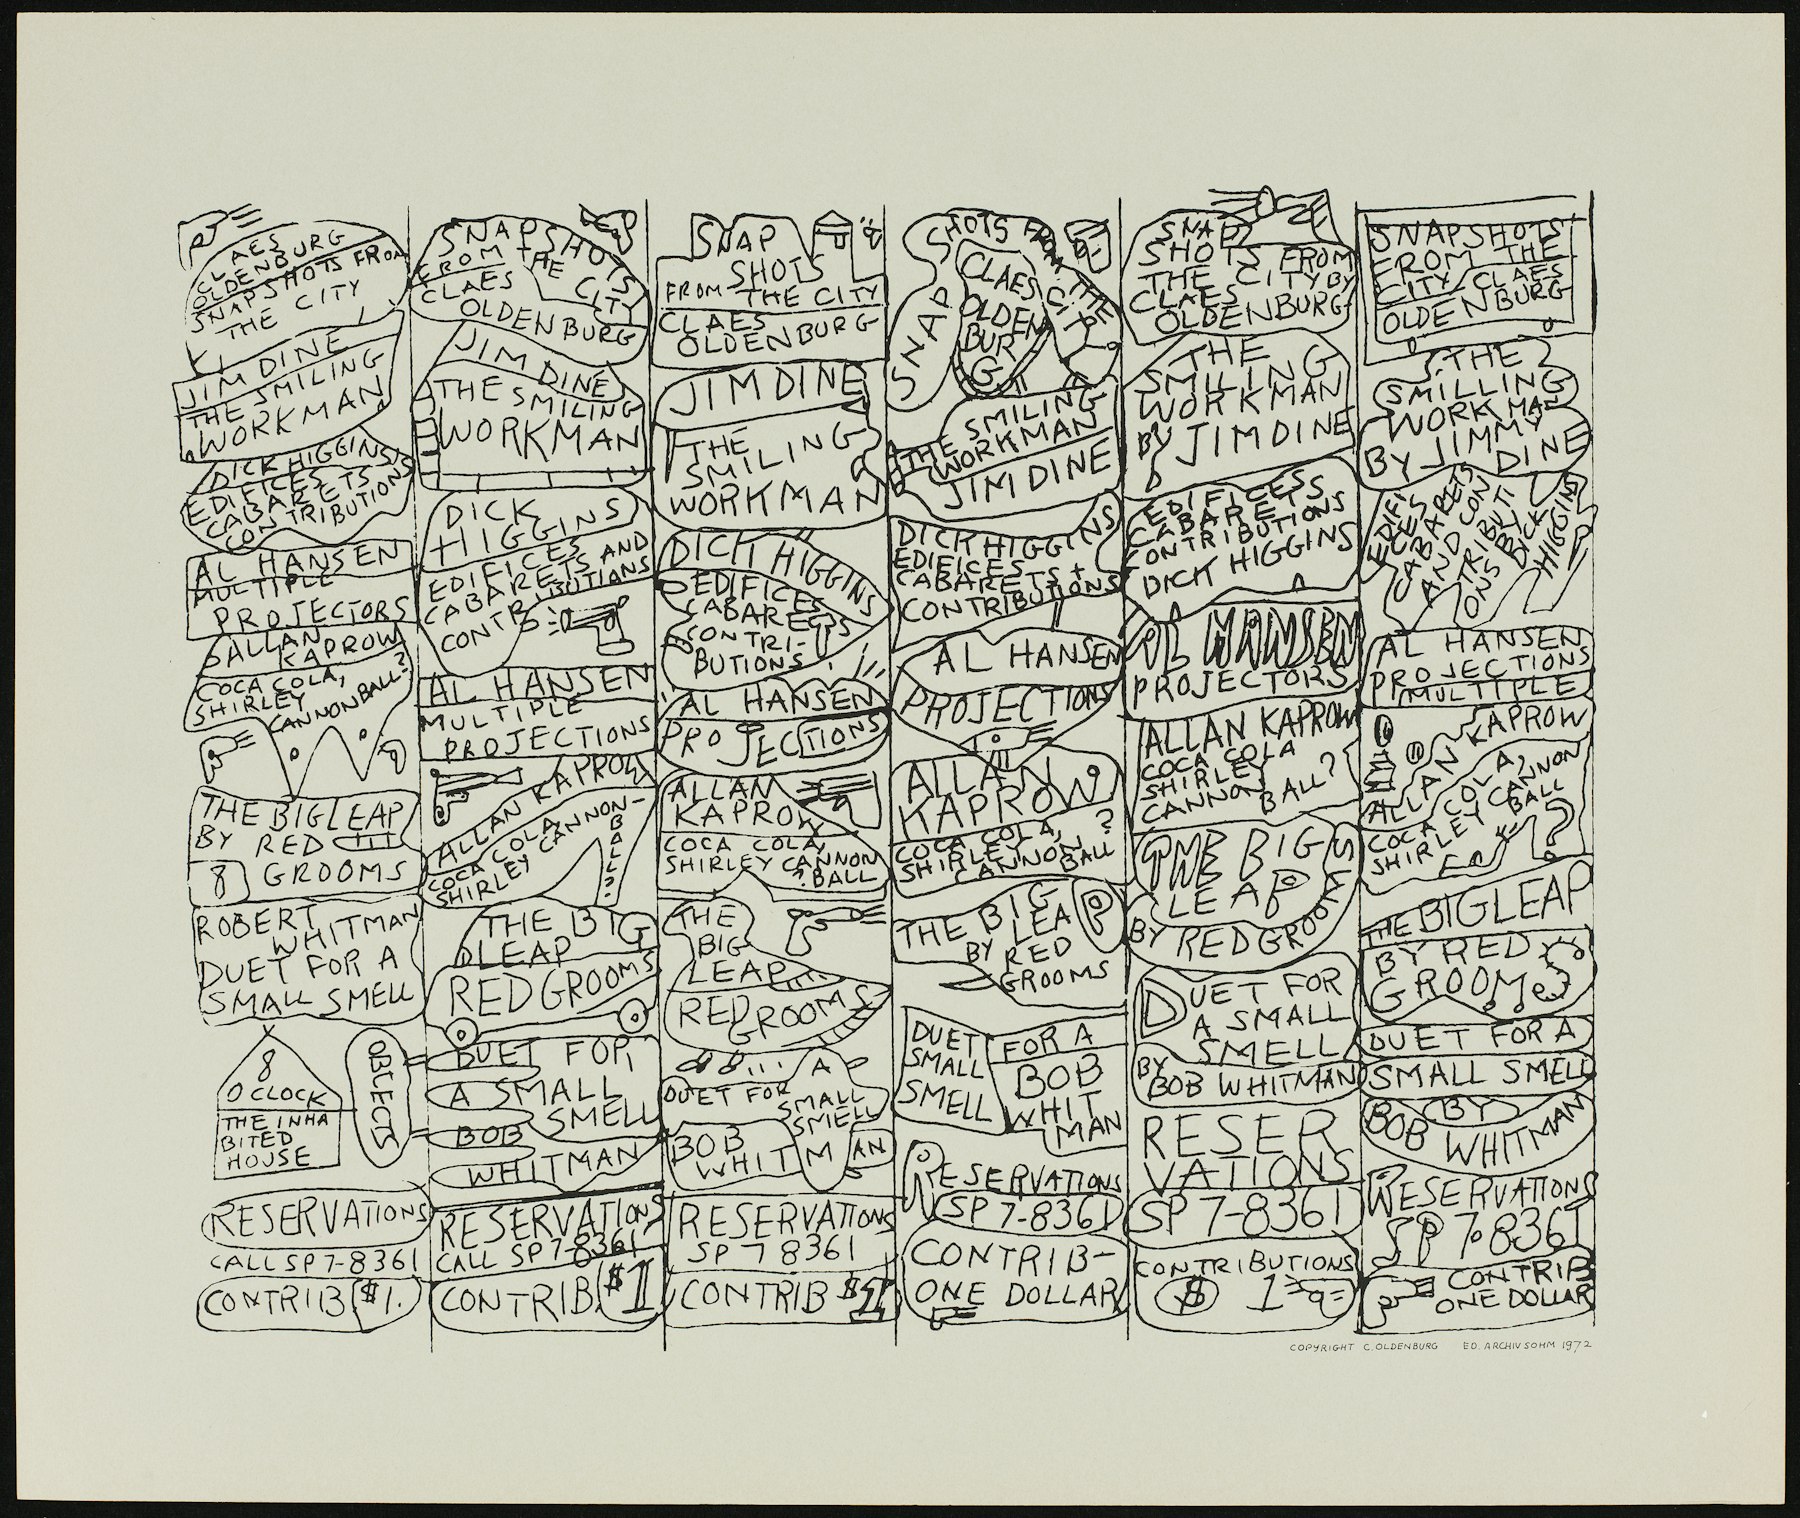 CLAES
OLDENBURG
SNAPSHOTS FROM
THE CITY
JIM DINE
THE SMILING
WORKMAN
DICK HIGGINS
EDIFICES
CABARETS
CONTRIBUTIONS
AL HANSEN
MULTIPLE
PROJECTORS
ALLAN
KAPROW
COCA COLA,
SHIRLEY
CANNONBALL?
THE BIG LEAP
BY RED
GROOMS
ROBERT
WHITMAN
DUET FOR A
SMALL SMELL
8
O CLOCK
THE INHA
BITED
HOUSE
OBJECTS
RESERVATIONS
CALL SP 7-8361
CONTRIB $1.
SNAPSHOTS
FROM THE
CITY
CLAES
OLDENBURG
JIM DINE
THE SMILING
WORKMAN
DICK
HIGGINS
EDIFICES
CABARETS AND
CONTRIBUTIANS
AL HANSEN
MULTIPLE
PROJECTIONS
ALLAN KAPROW
COCA COLA
SHIRLEY CANNON-
BALL?
THE BIG
LEAP
RED GROOMS
DUET FOR
A SMALL
SMELL
BOB
WHITMAN
RESERVATIONS
CALL SP 7-8361
CONTRIB. $1
SNAP
SHOTS
FROM THE CITY
CLAES
OLDENBURG
JIM DINE
THE
SMILING
WORKMAN
DICK HIGGINS
EDIFICES
CABARETS
CONTRI-
BUTIONS
AL HANSEN
PROJECTIONS
ALLAN
KAPROW
COCA COLA,
SHIRLEY CANNON
BALL?
THE
BIG
LEAP
RED
GROOMS
DUET FOR A
SMALL
SMELL
BOB
WHITMAN
RESERVATIONS
SP 7 8361
CONTRIB $1
SNAP
SHOTS FROM THE
CITY
CLAES
OLDEN
BUR
G
THE SMILING
WORKMAN
JIM DINE
DICK HIGGINS
EDIFICES
CABARETS +
CONTRIBUTIONS
AL HANSEN
PROJECTIONS
ALLAN
KAPROW
COCA COLA,
SHIRLEY
CANNON BALL?
THE BIG
LEAP
BY RED
GROOMS
DUET FOR A
SMALL
SMELL
BOB
WHIT
MAN
RESERVATIONS
SP 7-8361
CONTRIB-
ONE DOLLAR
SNAP
SHOTS FROM
THE CITY BY
CLAES
OLDENBURG
THE
SMILING
WORKMAN
BY JIM DINE
EDIFICESS
CABARETS
CONTRIBUTIONS
DICK HIGGINS
AL HANSEN
PROJECTORS
ALLAN KAPROW
COCA COLA
SHIRLEY
CANNON BALL?
THE BIG
LEAP
BY RED GROOMS
DUET FOR
A SMALL
SMELL
BY
BOB WHITMAN
RESER
VATIONS
SP 7-8361
CONTRIBUTIONS
$ 1
SNAPSHOTS
FROM THE
CITY CLAES
OLDENBURG
THE
SMILLING
WORKMAN
BY JIMMY
DINE
EDIFI
CES
CABARETS
AND CON
TRIBUTI
ONS BY
DICK
HIGGINS
AL HANSEN
PROJECTIONS
MULTIPLE
ALLAN KAPROW
COCA COLA,
SHIRLEY CANNON
BALL?
THE BIG LEAP
BY RED
GROOMS
DUET FOR A
SMALL SMELL
BY
BOB WHITMAN
RESERVATIONS
SP 7-8361
CONTRIB
ONE DOLLAR
COPYRIGHT C. OLDENBURG ED. ARCHIV SOHM 1972